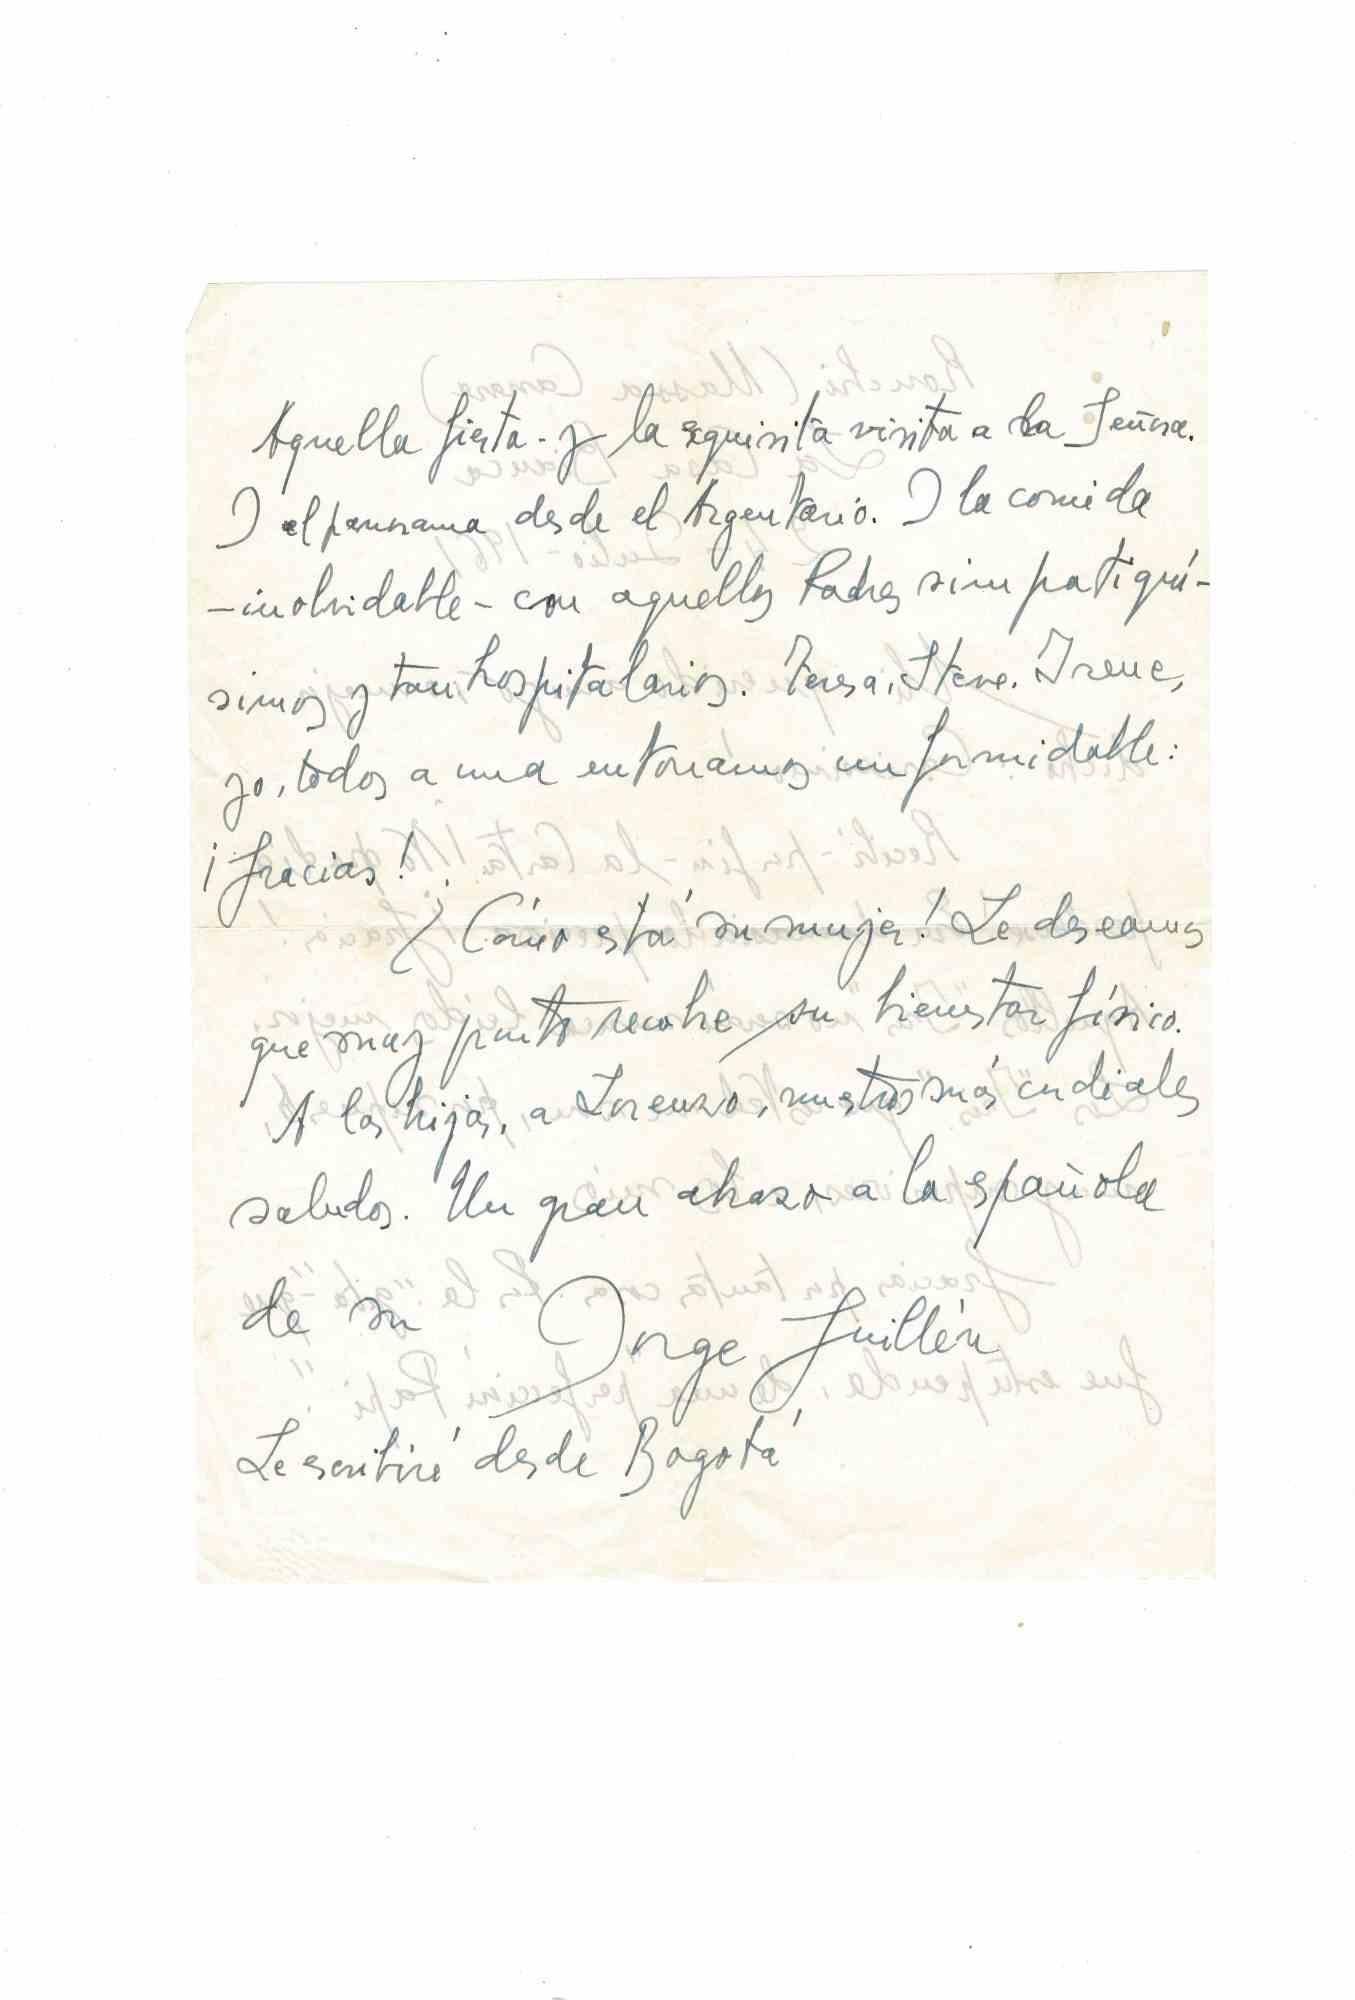 Aquella fiesta - y la exquisita visita a la Señora.
Y el panorama desde el Argentario. Y la comida
- inolvidable - con aquellos Padres simpatiquí-
simos y tan hospitalarios. Teresa, Steve, Irene,
yo, todos a una entonamos un formidable:
¡Gracias!
¿Cómo está su mujer! Le deseamos
que muy pronto recobre su bienestar físico.
A las hijas, a Lorenzo, nuestros más cordiales
saludos. Un gran abrazo a la española
de su Jorge Guillén
Le escribiré desde Bogotá